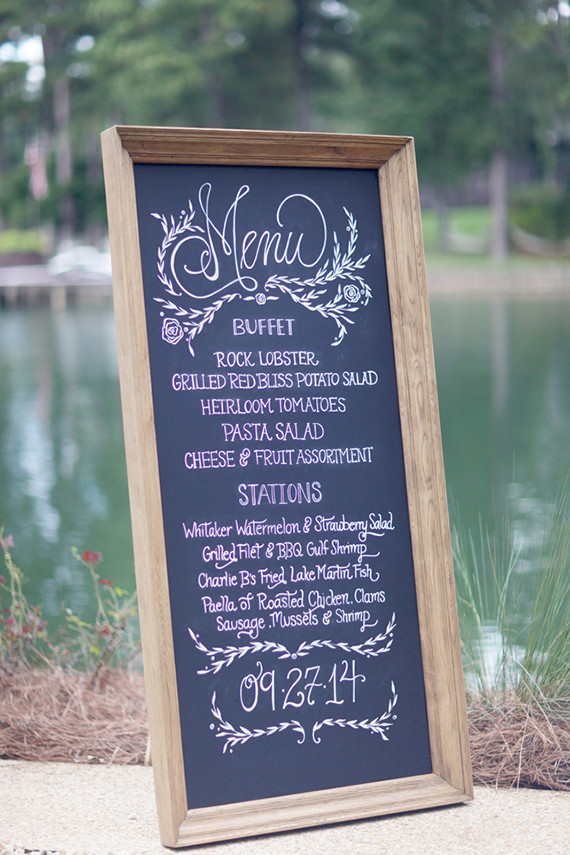 Menu
BUFFET
ROCK LOBSTER
GRILLED RED BLISS POTATO SALAD
HEIRLOOM TOMATOES
PASTA SALAD
CHEESE & FRUIT ASSORTMENT
STATIONS
Whitaker Watermelon & Strawberry Salad
Grilled Filet & BBQ Gulf Shrimp
Charlie B's Fried Lake Martin Fish
Paella of Roasted Chicken, Clams
Sausage, Mussets & Shrimp
09·27·14